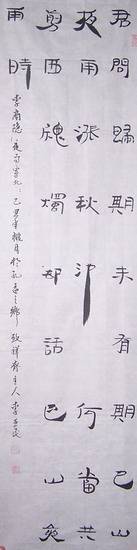 君問歸期未有期巴山
夜雨漲秋池何當共
剪西牕燭却話巴山夜
雨時
李商隱夜雨寄北己丑年榴月於孔孟之鄉致祥齋主人李